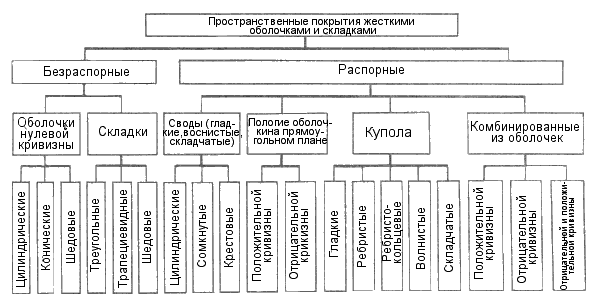 Пространственные покрытия жесткими
оболочками и складками
Безраспорные
Распорные
Оболочки
нулевой
кривизны
Складки
Своды (глад-
кие,воснистые,
складчатые)
Пологие оболоч-
кина прямоу-
гольном плане
Купола
Комбинированные
из оболочек
Цилиндрические
Конические
Шедовые
Треугольные
Трапециевидные
Шедовые
Цилиндрические
Сомкнутые
Крестовые
Положительной
кривизны
Отрицательной
крикизны
Гладкие
Ребристые
Ребристо-
кольцевые
Волнистые
Складчатые
Положительной
кривизны
Отрицательной
кривизны
Отрицательной и положи-
тельной кривизны